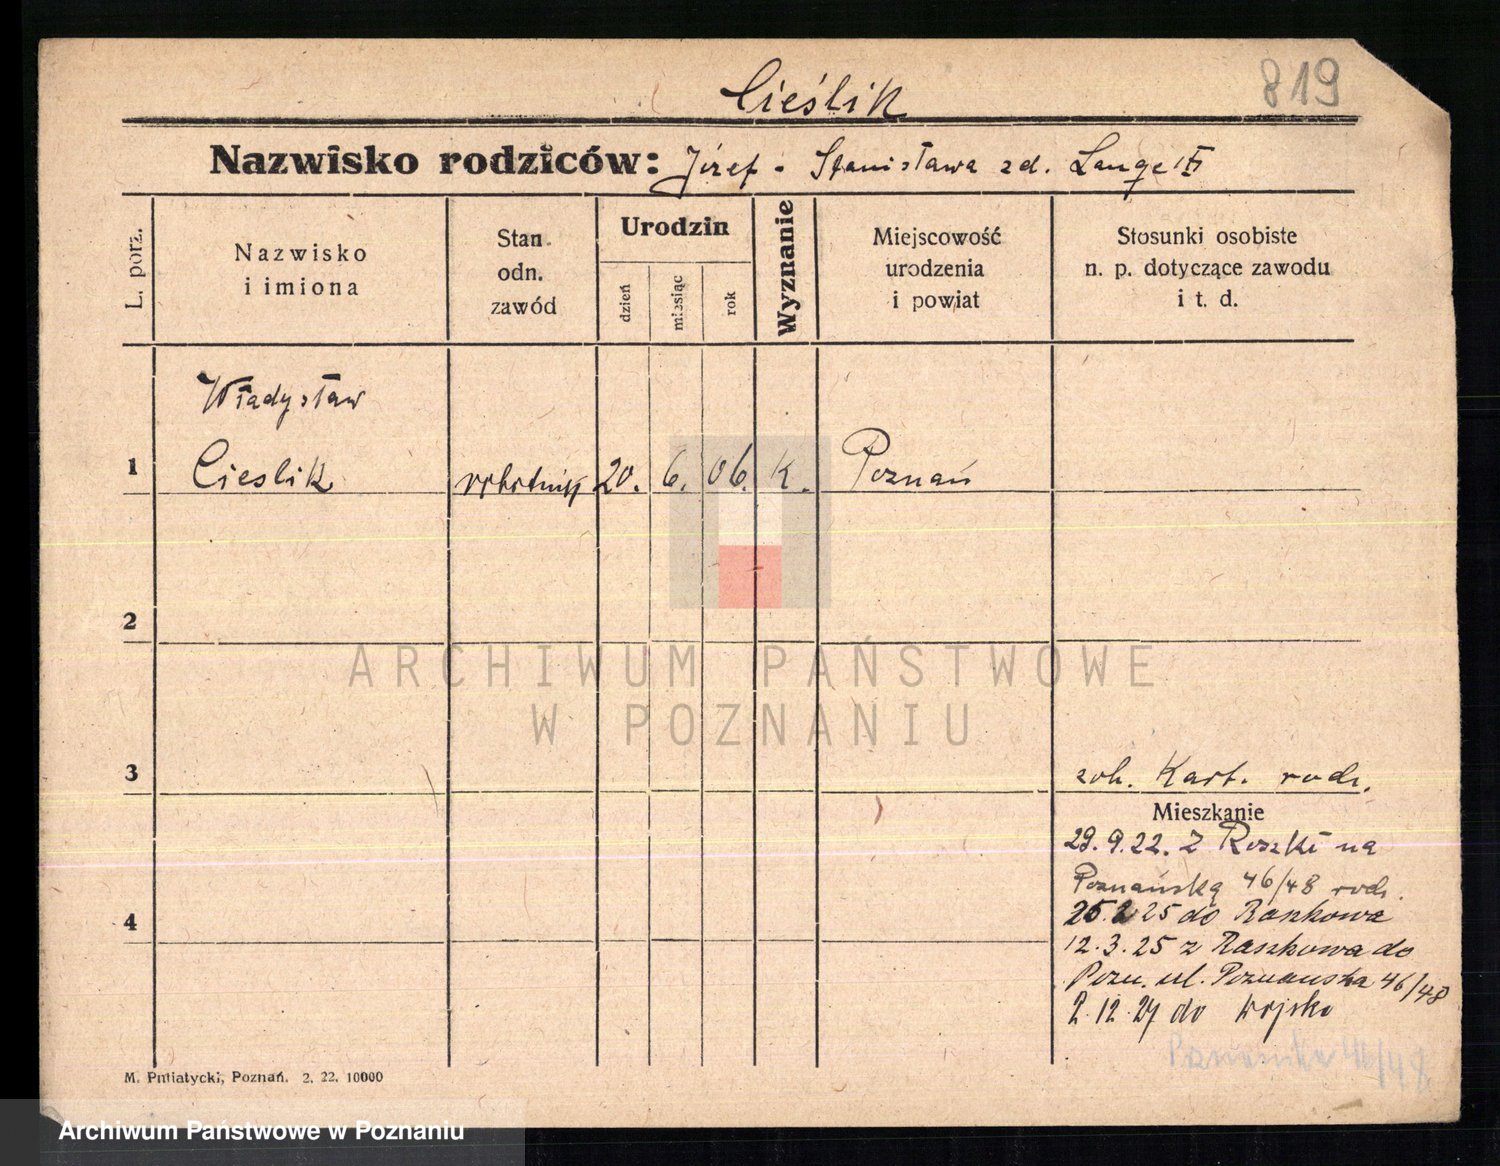 Cieślik
819
Nazwisko rodziców: Józef - Stanisława zd. Lange
L. porz.
Nazwisko
i imiona
Stan
odn.
zawód
Urodzin
dzień
miesiąc
rok
Wyznanie
Miejscowość
urodzenia
i powiat
Stosunki osobiste
n. p. dotyczące zawodu
i t. d.
Władysław
1 Cieslik robotnik 20. 6. 06. K. Poznań
2
ARCHIWUM PAŃSTWOWE
W POZNANIU
3
zob. Kart. rodz.
Mieszkanie
29.9.22. z Roszki na
Poznańską 46/48 rodz.
4
25.2 25 do Raszkowa
12.3.25 z Raszkowa do
Pozn. ul. Poznańska 46/48
2.12.27 do wojska
Poznańska 46/48
M. Putiatycki, Poznań. 2. 22. 10000
Archiwum Państwowe w Poznaniu